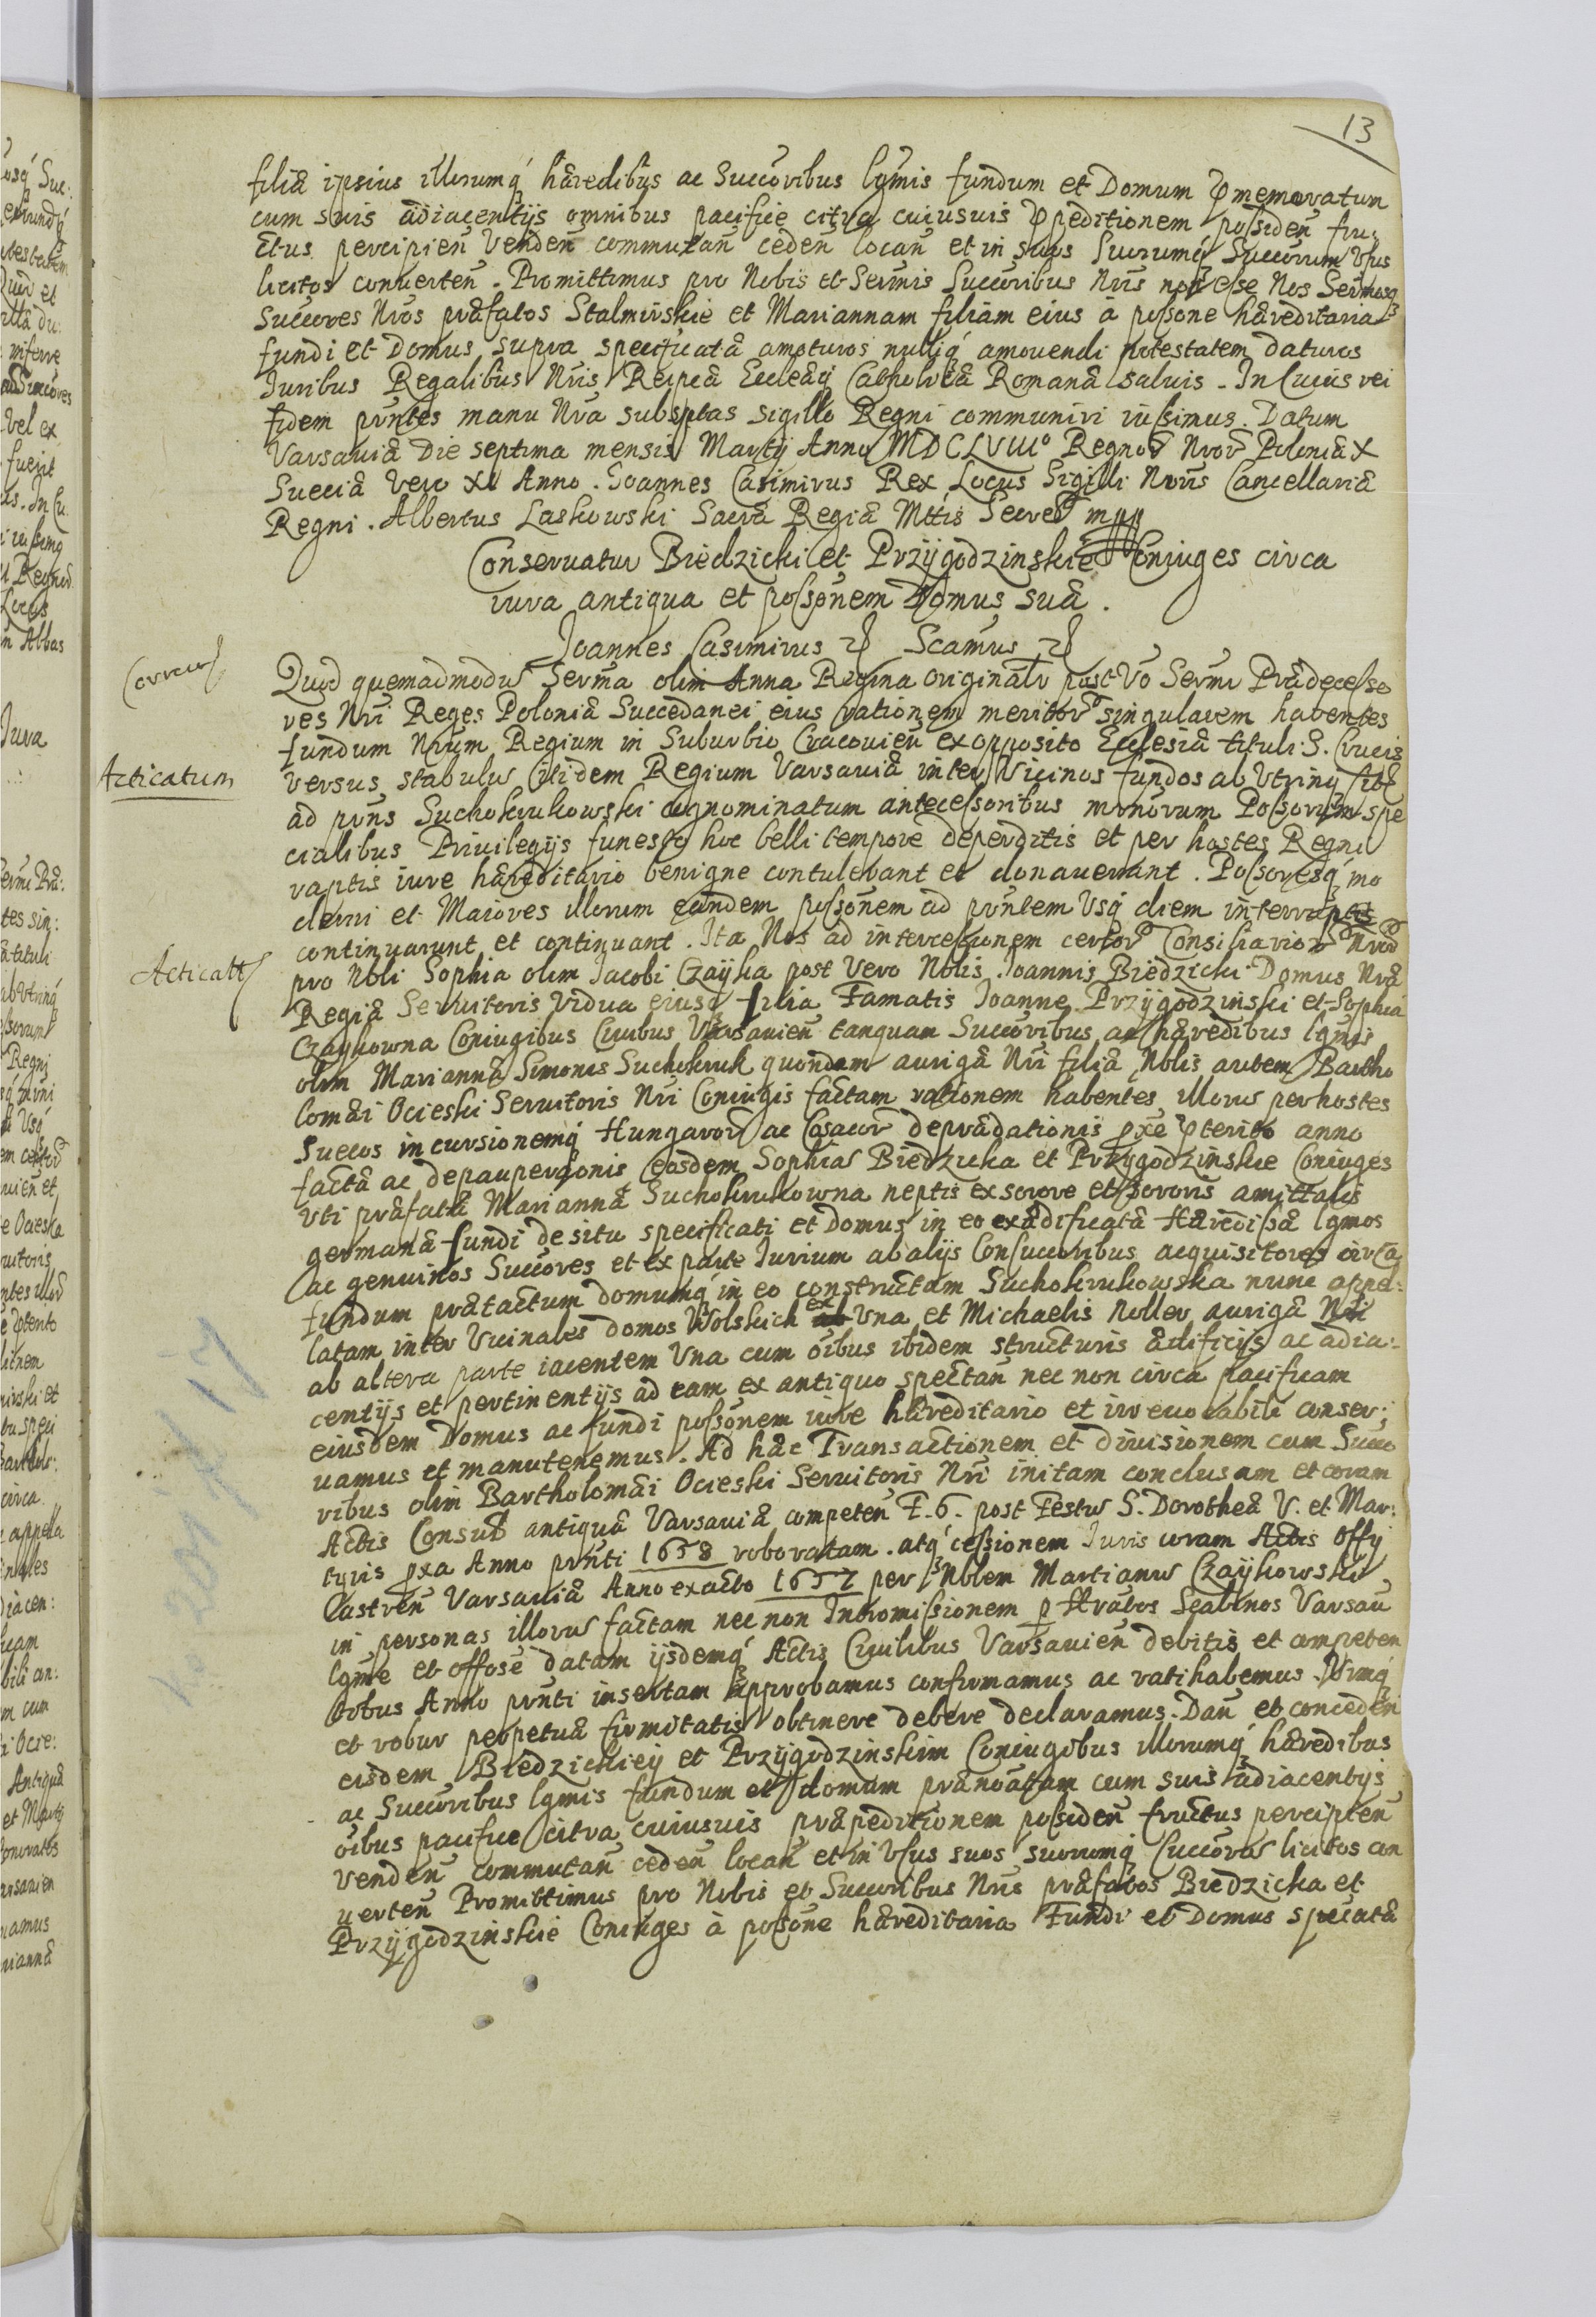 13
filiæ ipsius illorumq́ hæredibus ac Succōribus lgmis fundum et Domum p̄memoratum
cum suis adiacentijs omnibus pacifice citra cuiusuis p̄peditionem possideñ fru:
ctus percipieñ Vendeñ commutañ cedeñ locañ et in suos Suorumq́ Succorum Vsus
licitos conuerteñ. Promittimus pro Nobis et Sermis Succoribus Nris non esse Nos Sermosq
Succores Nros præfatos Stalmirskie et Mariannam filiam eius à possone hæreditaria
fundi et Domus supra specificatæ amoturos nulliq́ amouendi potestatem daturos
Iuribus Regalibus Nris Reipcæ Eccleæq́ Catholicæ Romanæ saluis. In Cuius rei
fidem pñtes manu Nra subsptas sigillo Regni communiri iussimus. Datum
Varsauiæ Die septima mensis Martij Anno MDCLVIIIo Regnor Nror Poloniæ X
Sueciæ Vero XI Anno. Joannes Casimirus Rex, Locus Sigilli Noris Cancellariæ
Regni. Albertus Laskowski Sacræ Regiæ Mttis Secret mpp
Conseruatur Biedzicki et Przÿgodzinskie Coniuges circa
iura antiqua et possonem Domus suæ.
Joannes Casimirus Scamus
Quod quemadmodu Serma olim Anna Regina originalr post Vo Sermi Prædecesso
res Nri Reges Poloniæ Succedanei eius rationem meritor singularem habentes
fundum Nrum Regium in Suburbio Cracouieñ ex opposito Ecclesiæ tituli S. Crucis
versus stabulu ibidem Regium Varsauiæ inter Vicinos fundos ab Vtrinq
Acticatum
ad pñns Suchokrukowski cognominatum antecessoribus mrnorum Possorum spe
cialibus Priuilegijs funesto hoc belli tempore deperditis et per hostes Regni
raptis iure hæreditario benigne contulerant et donauerant. Possoresq́ mo
derni et Maiores illorum eandem possonem ad pñtem Vsq́ diem
continuarunt et continuant. Ita Nos ad intercessionem certor Consiliarior Nror
Acticatt
pro Nbli Sophia olim Jacobi Czaÿka post Vero Nblis Joannis Biedzicki Domus Nræ
Regiæ Seruitoris Vidua eiusq filia Famatis Joanne Przÿgodzinski et Sophia
Czaÿkowna Coniugibus Ciuibus Varsauieñ tanquam Succoribus ac hæredibus lgmis
olim Mariannæ Simonis Suchokruk quondam aurigæ Nri filiæ Nblis autem Bartho
lomæi Ocieski Seruitoris Nri Coniugis factam rationem habentes illoru per hostes
Suecos incursionemq́ Hungaror ac Cosacor deprædationis pxe p̄terito anno
factæ ac depauperãonis Eosdem Sophia Biedzicka et Przygodzinskie Coniuges
vti præfatæ Mariannæ Suchokrukowna neptis ex sorore et sororis amittalis
germanæ fundi de situ specificati et Domus in eo exædificatæ Hæredissæ lgmos
ac genuinos Succores et ex parte Iurium ab alijs Consuccoribus acquisitores circa
fundum prætactum domumq́ in eo constructam Suchokrukowska nunc appel:
latam inter Vicinales domos Wolskich ex Vna et Michaelis Noller aurigæ Nri
ab altera parte iacentem Vna cum oibus ibidem structuris ædificijs ac adia:
centijs et pertinentijs ad eam ex antiquo spectañ nec non circa pacificam
eiusdem Domus ac fundi possonem iure hæreditario et irreuocabili conser:
uamus et manutenemus. Ad hæc Transactionem et diuisionem cum Succo
ribus olim Bartholomæi Ocieski Seruitoris Nri initam conclusam et coram
Actis Consulb antiquæ Varsauiæ competeñ F. 6. post Festu S. Dorotheæ V. et Mar:
tyris pxa Anno pñti 1658 roboratam. atq́ cessionem Iuris coram Actis Offÿ
Castreñ Varsauiæ Anno exacto 1657 per Nblem Martianu Czaÿkowski
in personas illoru factam nec non Intromissionem p Hrabos Scabinos Varsau
lgme et offose datam ijsdemq́ Actis Ciuilibus Varsauieñ debitis et competen
tibus Anno pñti insertam approbamus confirmamus ac ratihabemus. Vimq́
et robur perpetuæ firmitatis obtinere debere declaramus. Dañ et concedeñ
eisdem Biedzickieÿ et Przÿgodzinskim Coniugibus illorumq́ hæredibus
ac Succoribus lgmis fundum et domum prænoatam cum suis adiacentijs
oibus pacifice citra cuiusuis præpeditionem possideñ fructus percipieñ
vendeñ commutañ cedeñ locañ et in Vsus suos suorumq́ Succoru licitos con
uerteñ Promittimus pro Nobis et Succoribus Nris præfatos Biedzicka et
Przÿgodzinskie Coniuges à possone hæreditaria Fundi et Domus specatæ